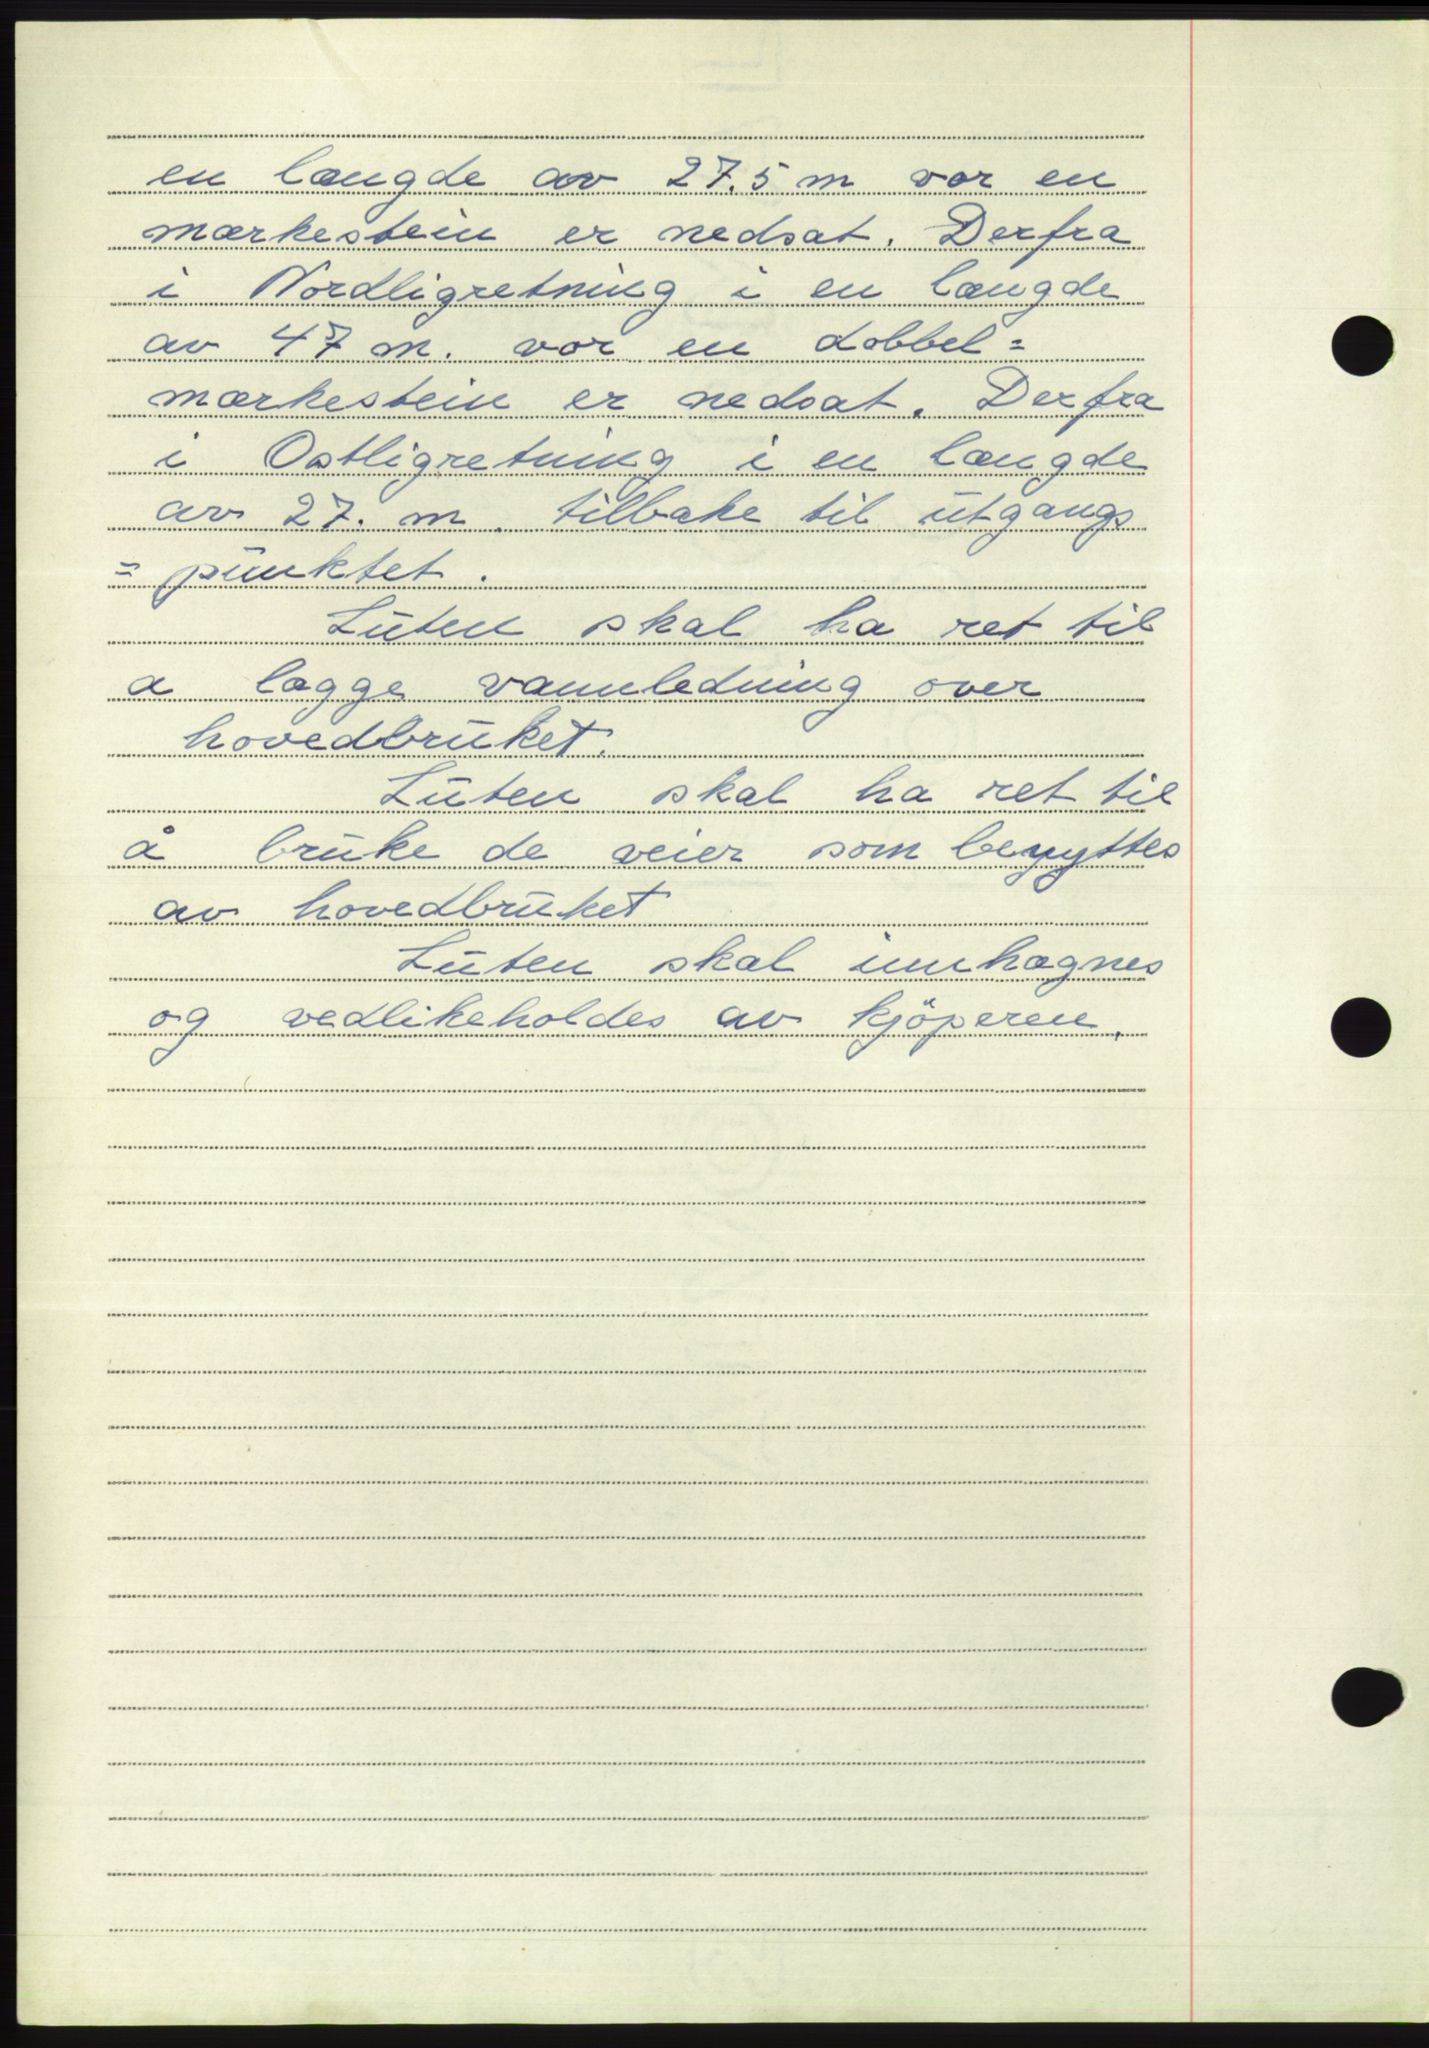 en længde av 27.5 m vor en
mærkestein er nedsat. Derfra
i Nordligretning i en længde
av 47 m. vor en dobbel=
mærkestein er nedsat. Derfra
i Ostligretning i en længde
av 27. m. tilbake til ūtgangs
= pūnktet.
Lūten skal ha ret til
a lægge vannledning over
hovedbrūket.
Lūten skal ha ret til
å brūke de veier som benyttes
av hovedbrūket
Lūten skal innhægnes
og vedlikeholdes av kjöperen.